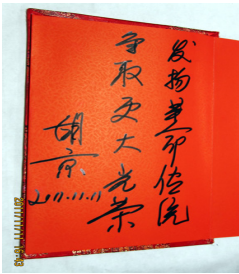 发扬革命传统
争取更大光荣
胡
2011.11.11